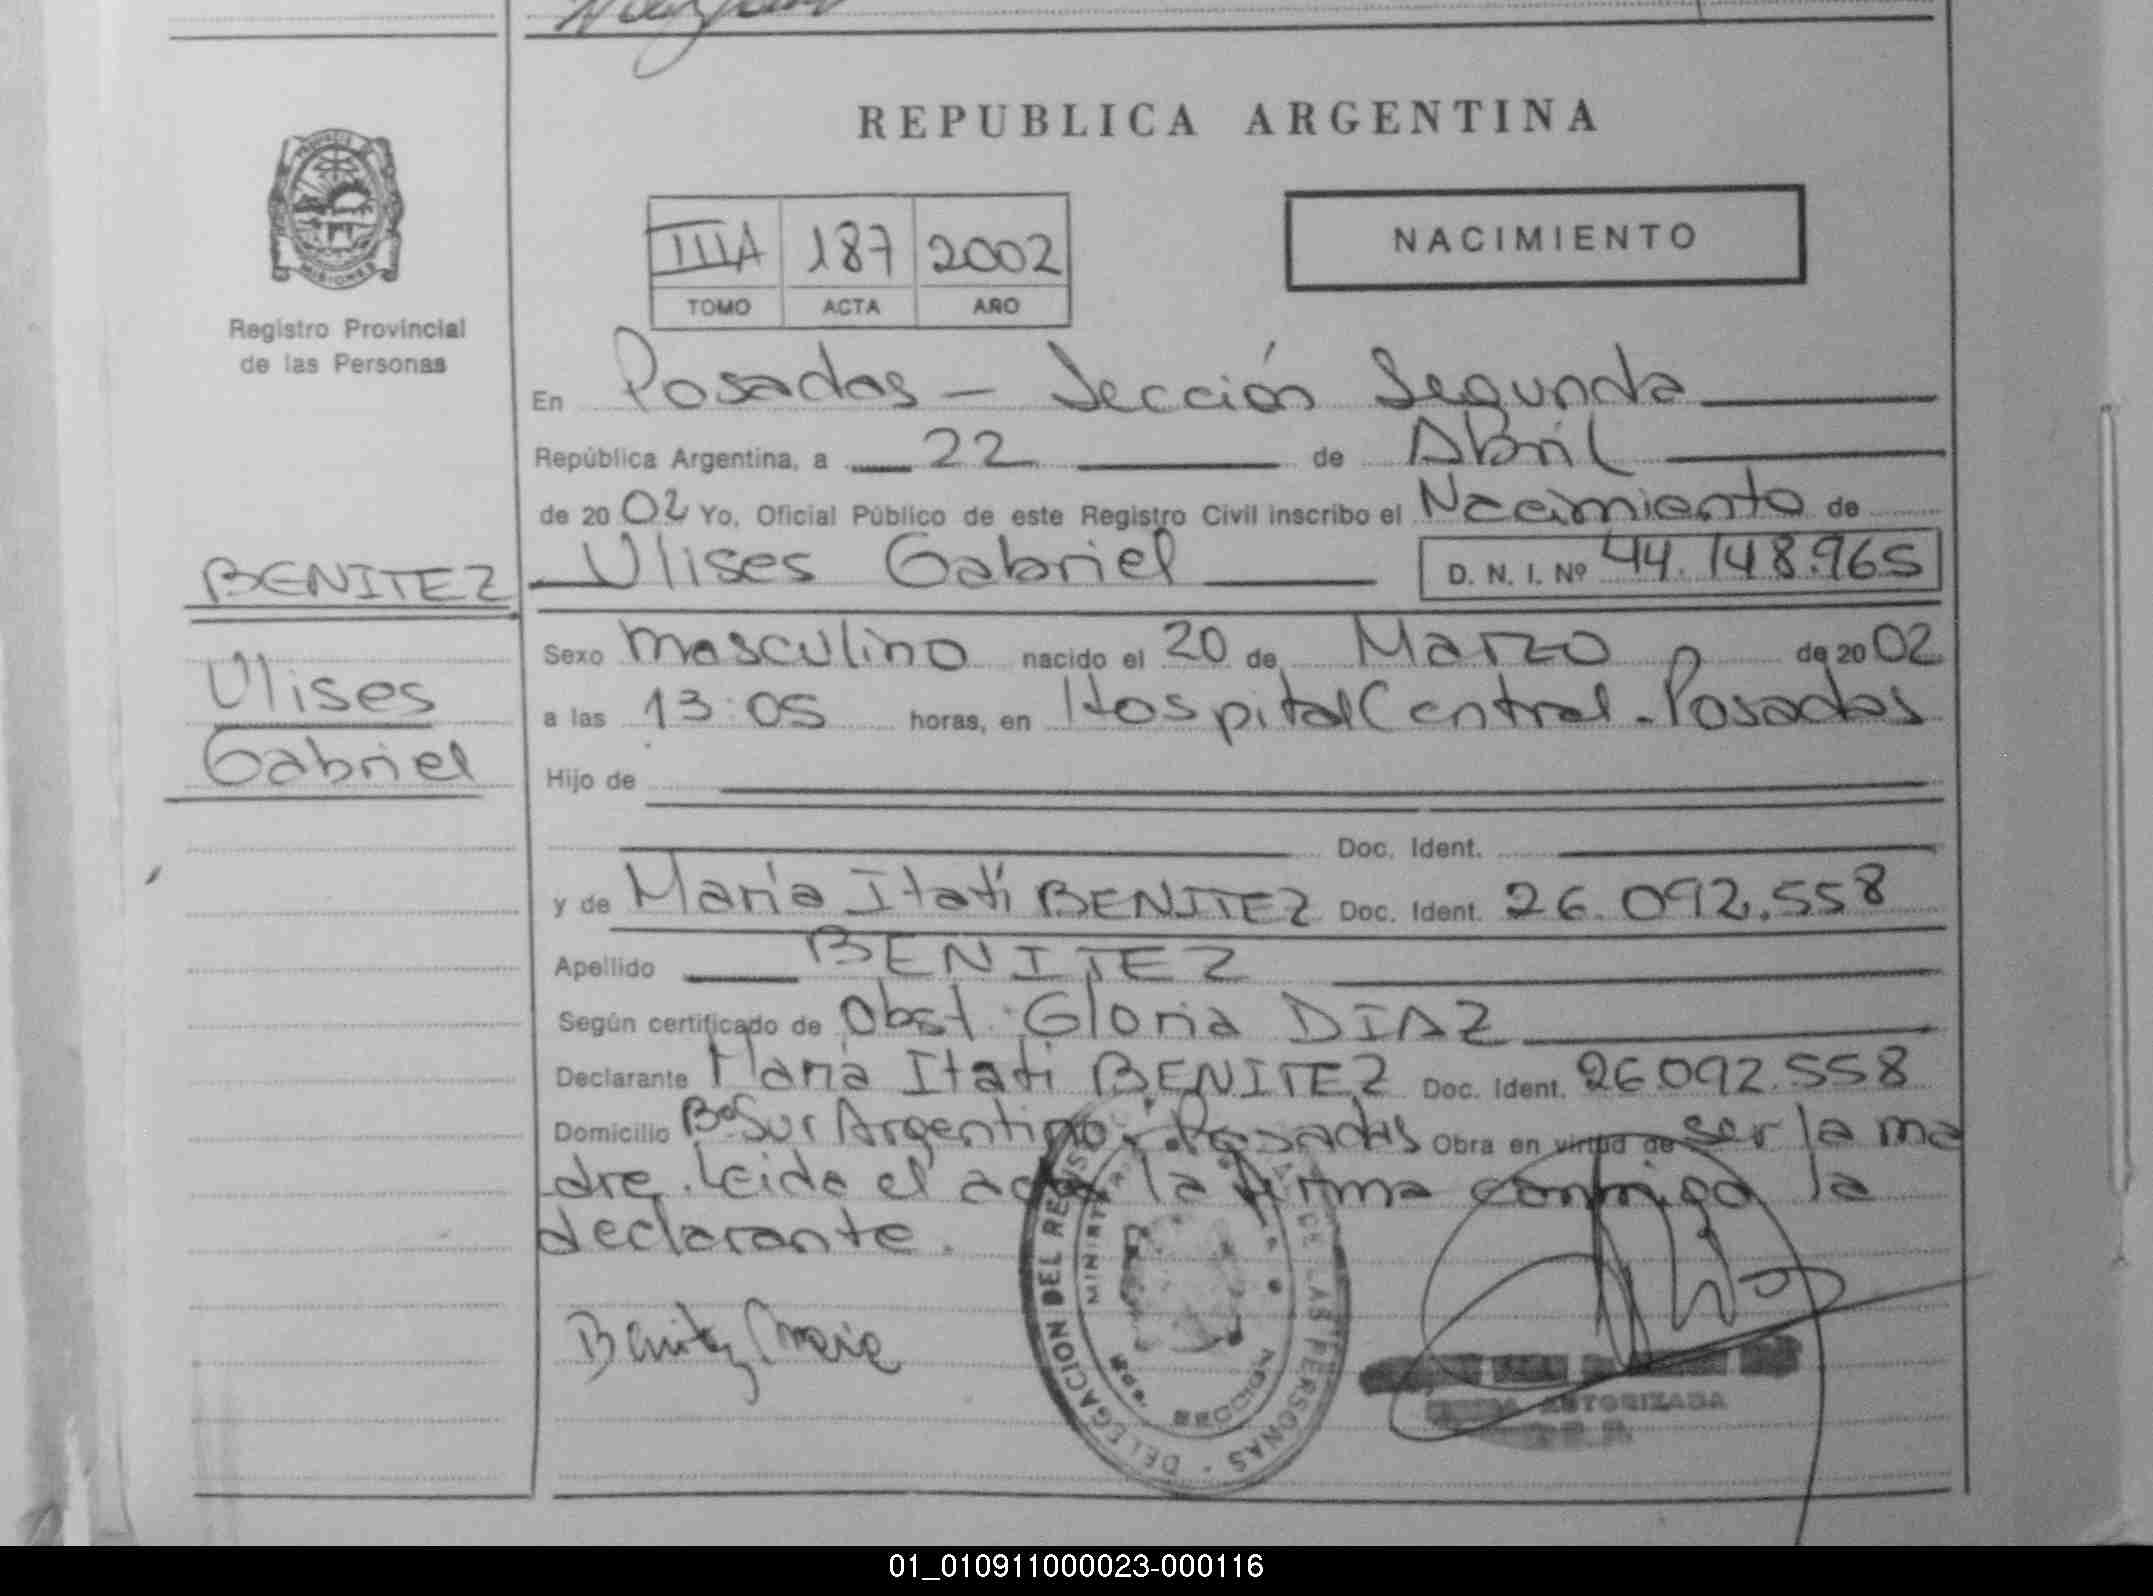 REPUBLICA ARGENTINA
PROVINCIA DE
MISIONES
Registro Provincial
de las Personas
IIIA 187 2002
TOMO ACTA AÑO
NACIMIENTO
En Posadas - Sección Segunda
República Argentina, a 22 de Abril
de 2002 Yo, Oficial Público de este Registro Civil inscribo el Nacimiento de
Ulises Gabriel D. N. I. Nº 44.148.965
BENITEZ
Ulises
Gabriel
Sexo masculino nacido el 20 de Marzo de 2002
a las 13:05 horas, en Hospital Central - Posadas
Hijo de
Doc. Ident.
y de María Itatí BENITEZ Doc. Ident. 26.092.558
Apellido BENITEZ
Según certificado de Obst. Gloria DIAZ
Declarante María Itati BENITEZ Doc. Ident. 26092.558
Domicilio Bº Sur Argentino - Posadas Obra en virtud de ser la ma
dre. Leida el acta la firma conmigo la
declarante.
Benitez Maria
DELEGACION DEL REGISTRO DE LAS PERSONAS
SECCION
AUTORIZADA
01_010911000023-000116